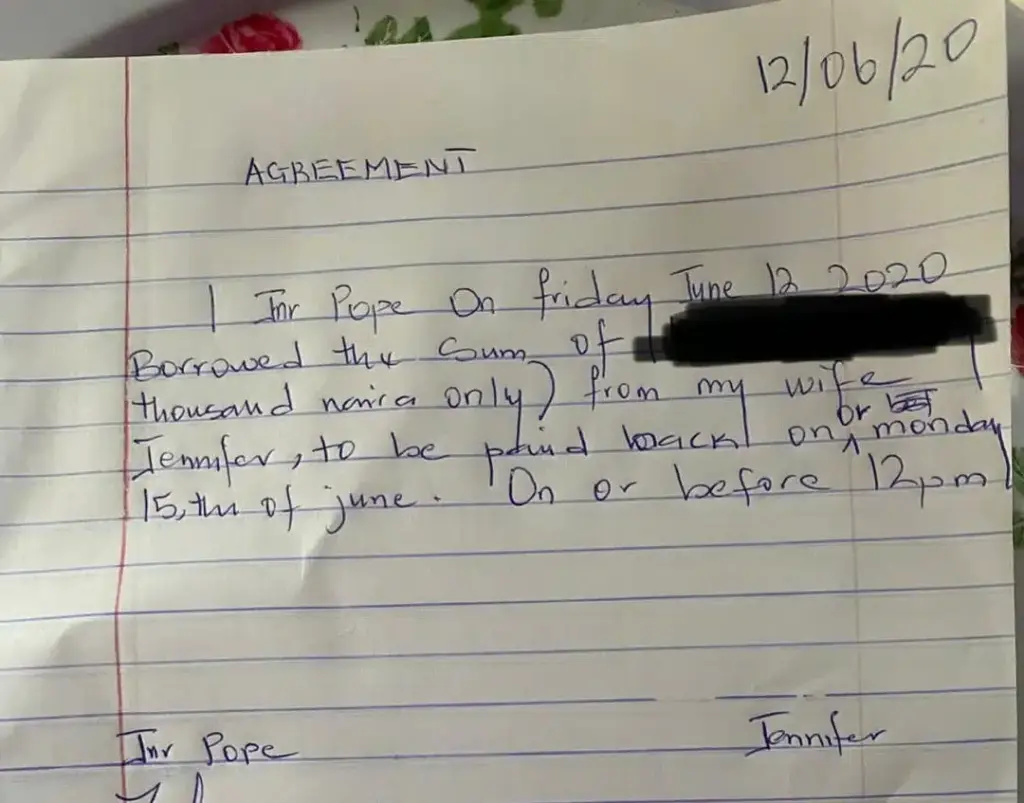 12/06/20
AGREEMENT
I Jnr Pope On friday June 12 2020
Borrowed the Sum of
thousand naira only) from my wife
or
Jennifer, to be paid back on monday
15,th of june. On or before 12pm
Jnr Pope Jennifer